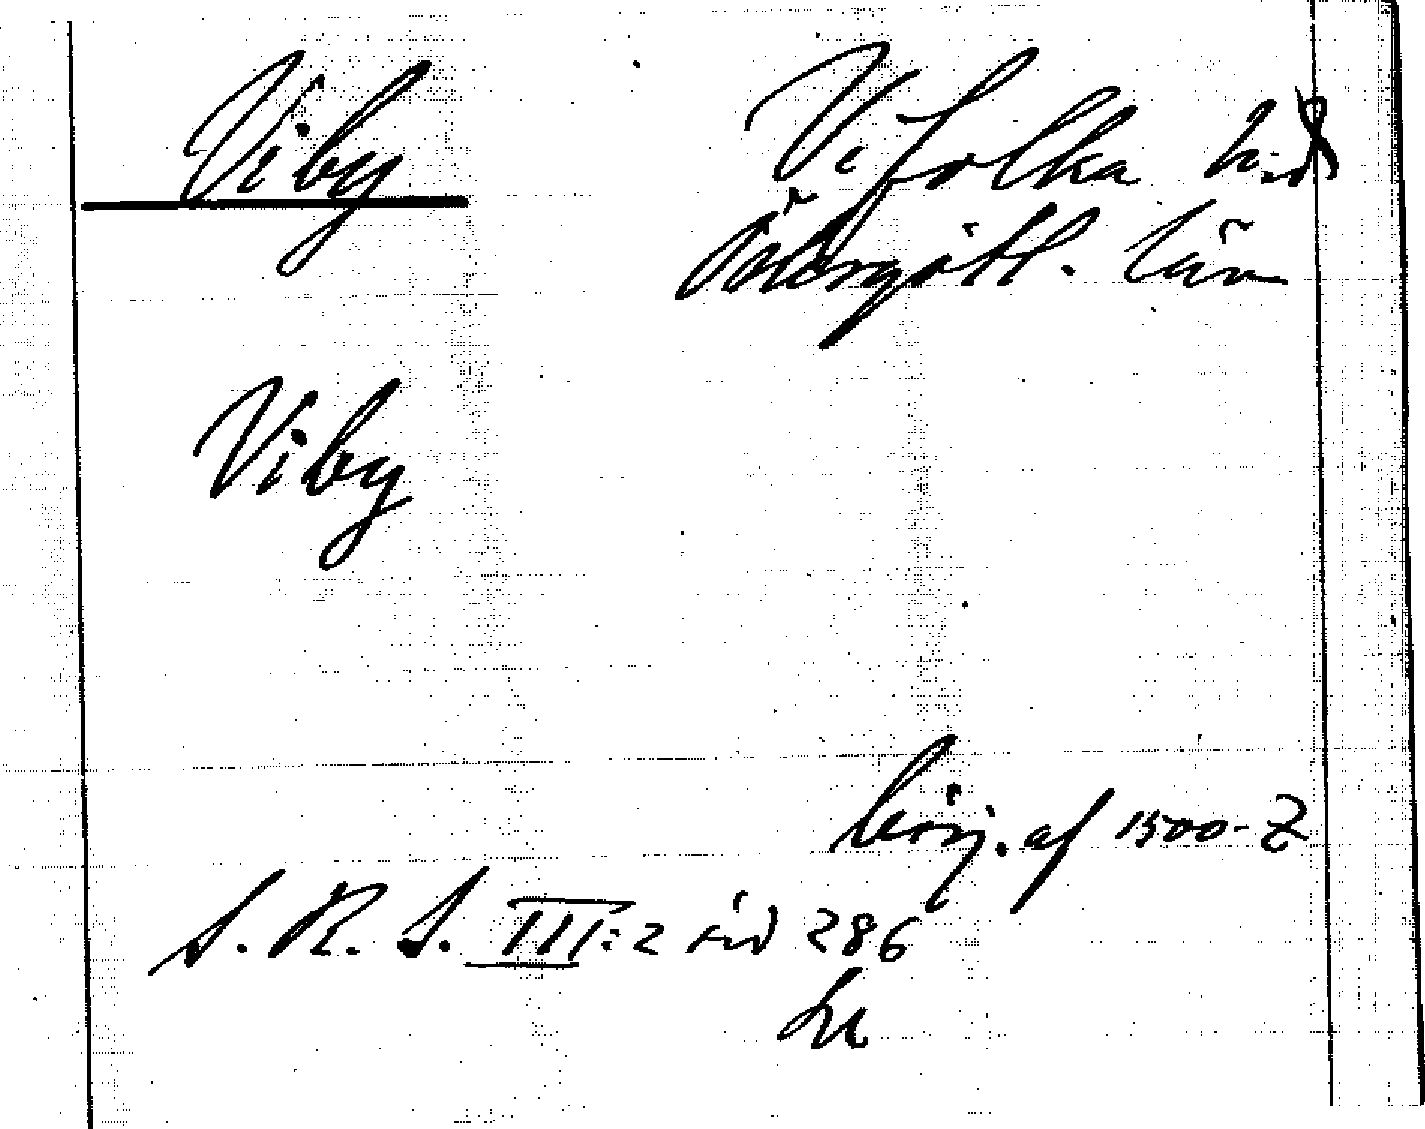 Viby
Vifolka hd
Östergötl. län
Viby
börj. af 1500-t
S. R. S. III:2 sid 286